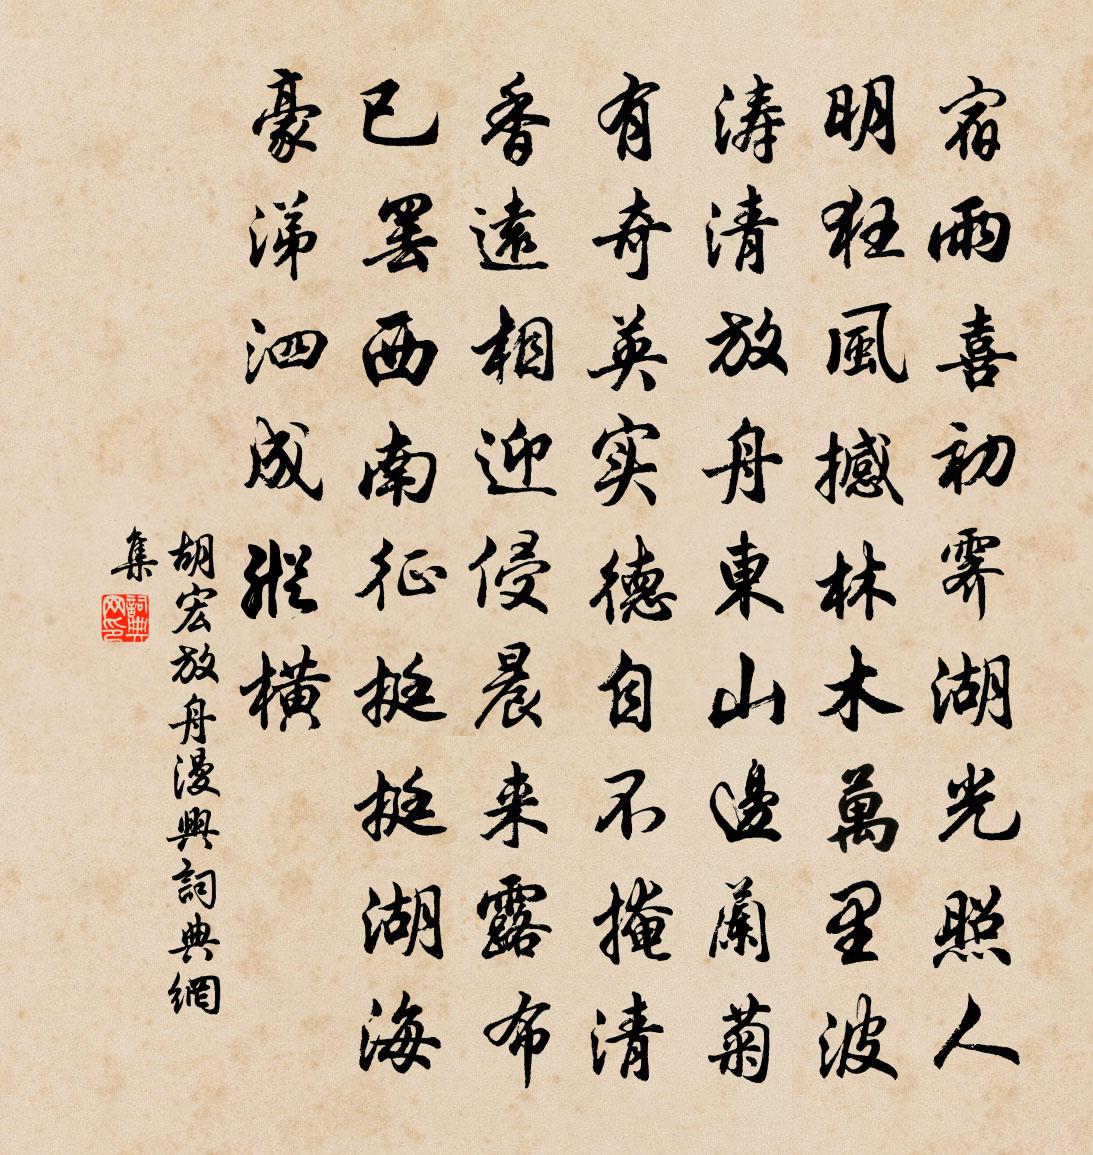 宿雨喜初霽湖光照人
明狂風撼林木萬里波
涛清放舟東山邊蘭菊
有奇英实德自不掩清
香遠相迎侵晨来露布
已罢西南征挺挺湖海
豪涕泗成縱橫
胡宏放舟漫興詞典網
集
詞典网印